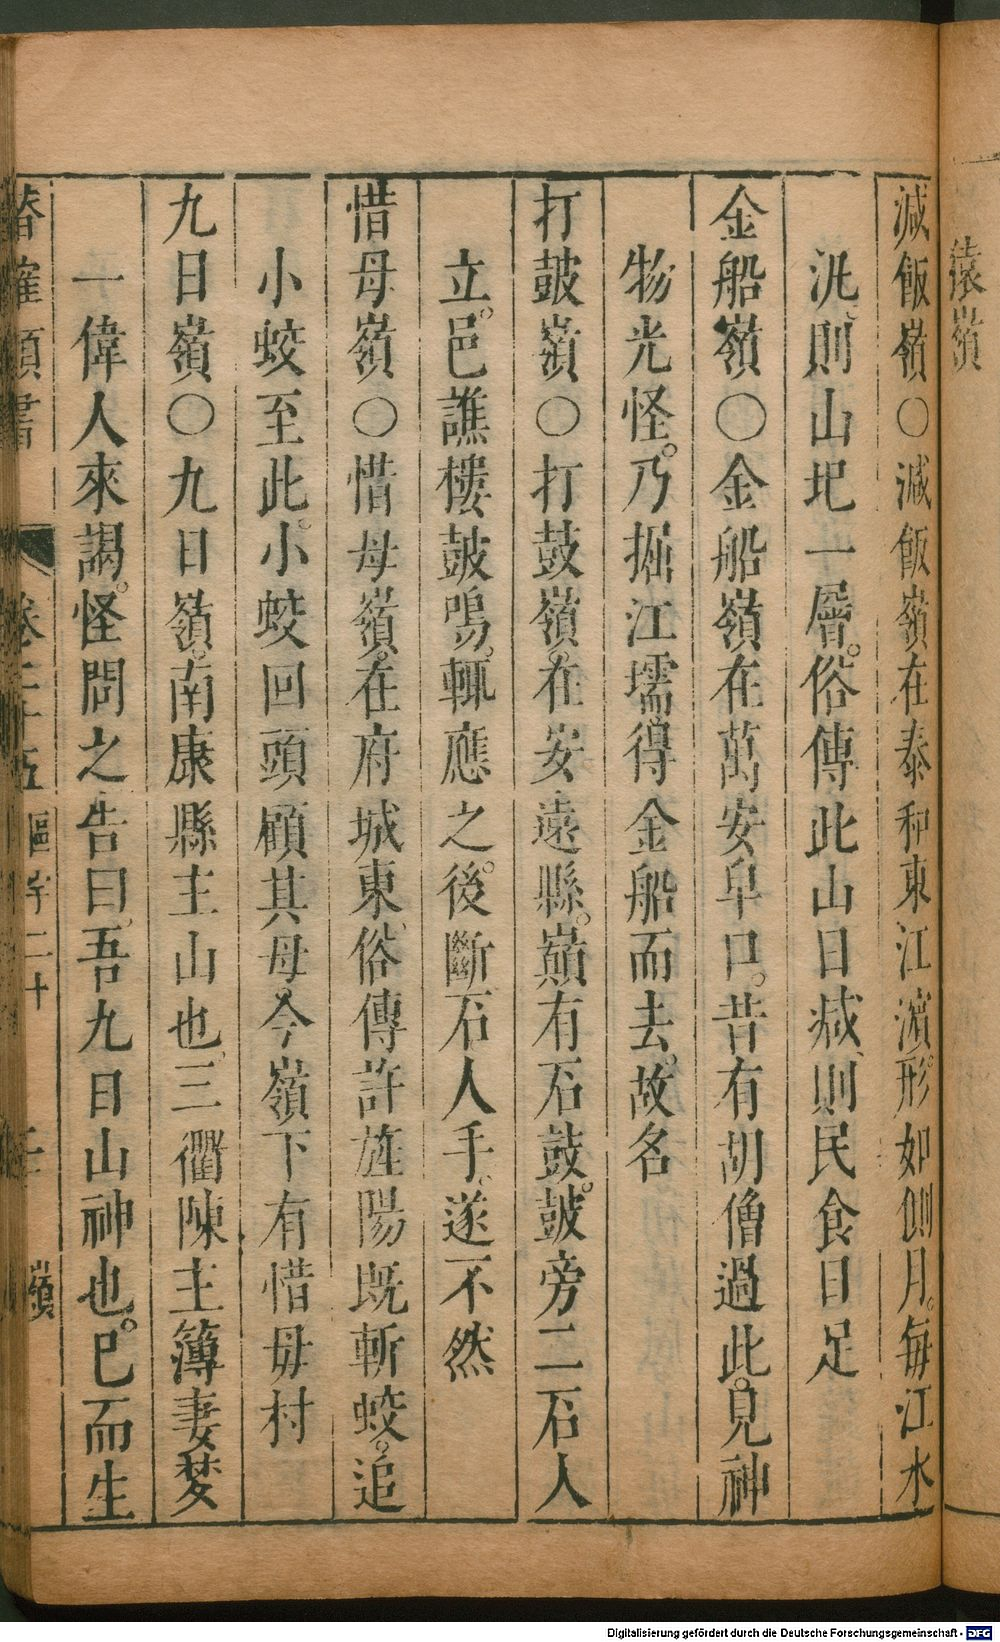 遠嶺
減飯嶺○減飯嶺在泰和東江濵。形如側月。每江水
汎、則山圯一層。俗傳此山日減、則民食日足
金船嶺○金船嶺在萬安皁口。昔有胡僧過此。見神
物光怪。乃掘江壖、得金船而去。故名
打皷嶺○打鼓嶺。在安遠縣。巔有石鼓。皷旁二石人
立。邑譙樓皷鳴。輒應之。後斷石人手。遂不然
惜母嶺○惜母嶺。在府城東。俗傳許旌陽既斬蛟。追
小蛟至此。小蛟回頭顧其母。今嶺下有惜母村
九日嶺○九日嶺。南康縣主山也。三衢陳主簿妻夢
一偉人來謁。怪問之。告曰。吾九日山神也。已而生
卷二十五 區宇二十 嶺
Digitalisierung gefördert durch die Deutsche Forschungsgemeinschaft - DFG